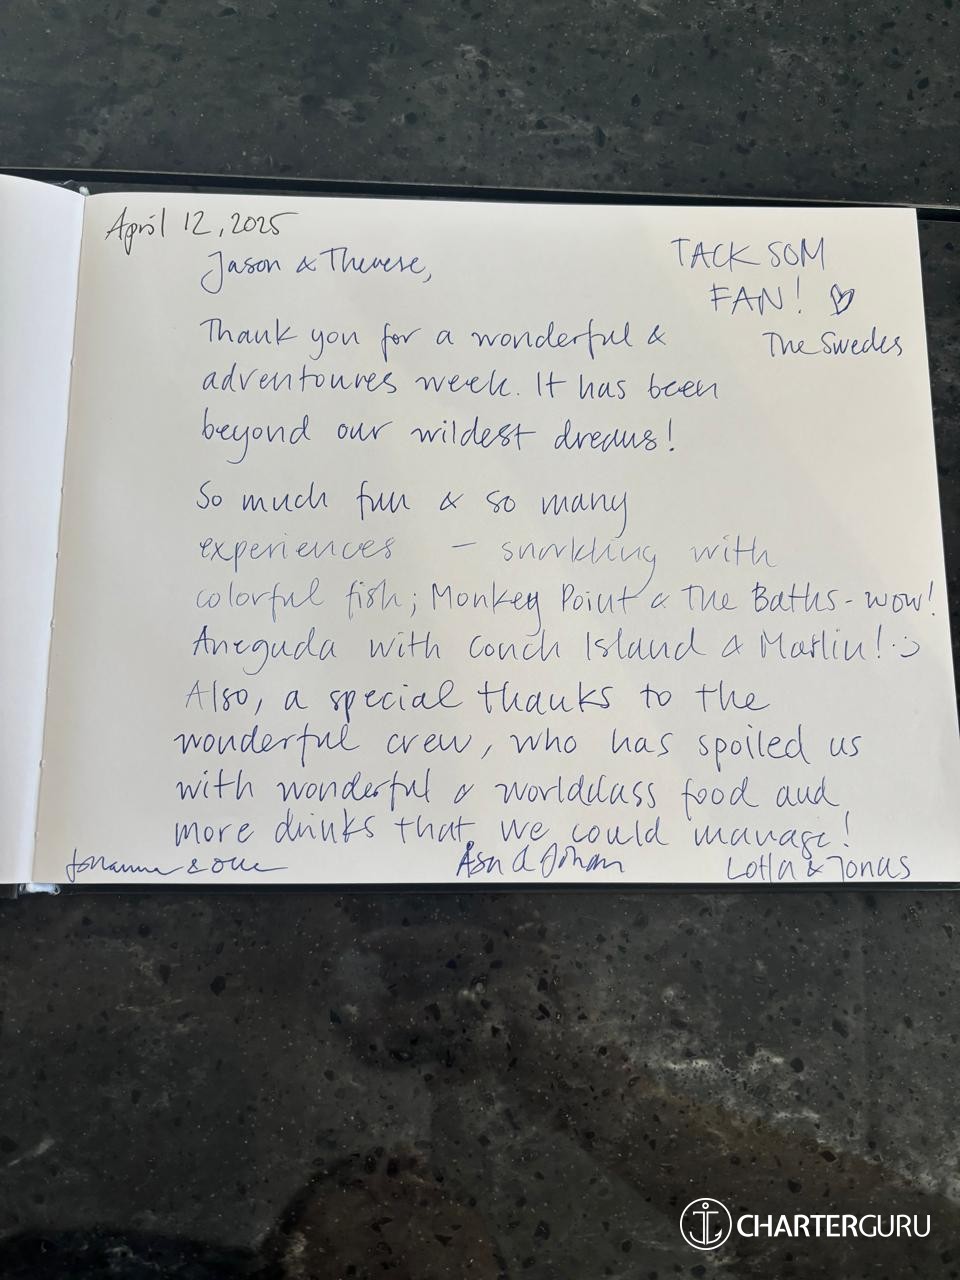 April 12, 2025
Jason & Therese,
TACK SOM
FAN! ♡
The Swedes
Thank you for a wonderful &
adventoures week. It has been
beyond our wildest dreams!
So much fun & so many
experiences – snorkling with
colorful fish; Monkey Point & The Baths - wow!
Aneguda with Conch Island & Marlin! :)
Also, a special thanks to the
wonderful crew, who has spoiled us
with wonderful & worldclass food and
more drinks that we could manage!
Johanna & Olle
Åsa & Johan
Lotta & Jonas
CHARTERGURU